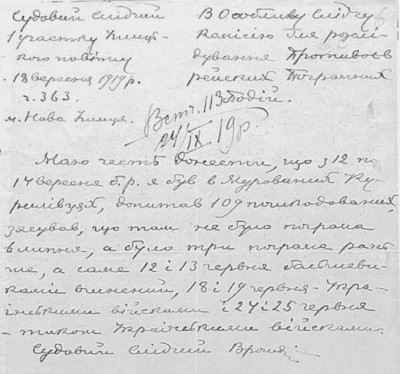 Судовий Слідчий
1 участку Ушиц-
кого повіту
18 вересня 1919 р.
ч. 363.
м. Нова Ушиця.
В Особливу Слідчу
Комісію для розслі-
дування Противоєв-
рейских Погромних
Подій.
Вст. 113
24/IX 19 р.
Маю честь донести, що з 12 по
14 вересня б.р. я був в Мурованих Ку-
рилівцях, допитав 109 потерпілих,
засував, що там не було погрома
в липня, а було три погрома рань-
ше, а саме 12 і 13 червня большеви-
ками вчинений, 18 і 19 червня - Укра-
інськими війсками і 24 і 25 червня
- також Українськими війсками.
Судовий Слідчий